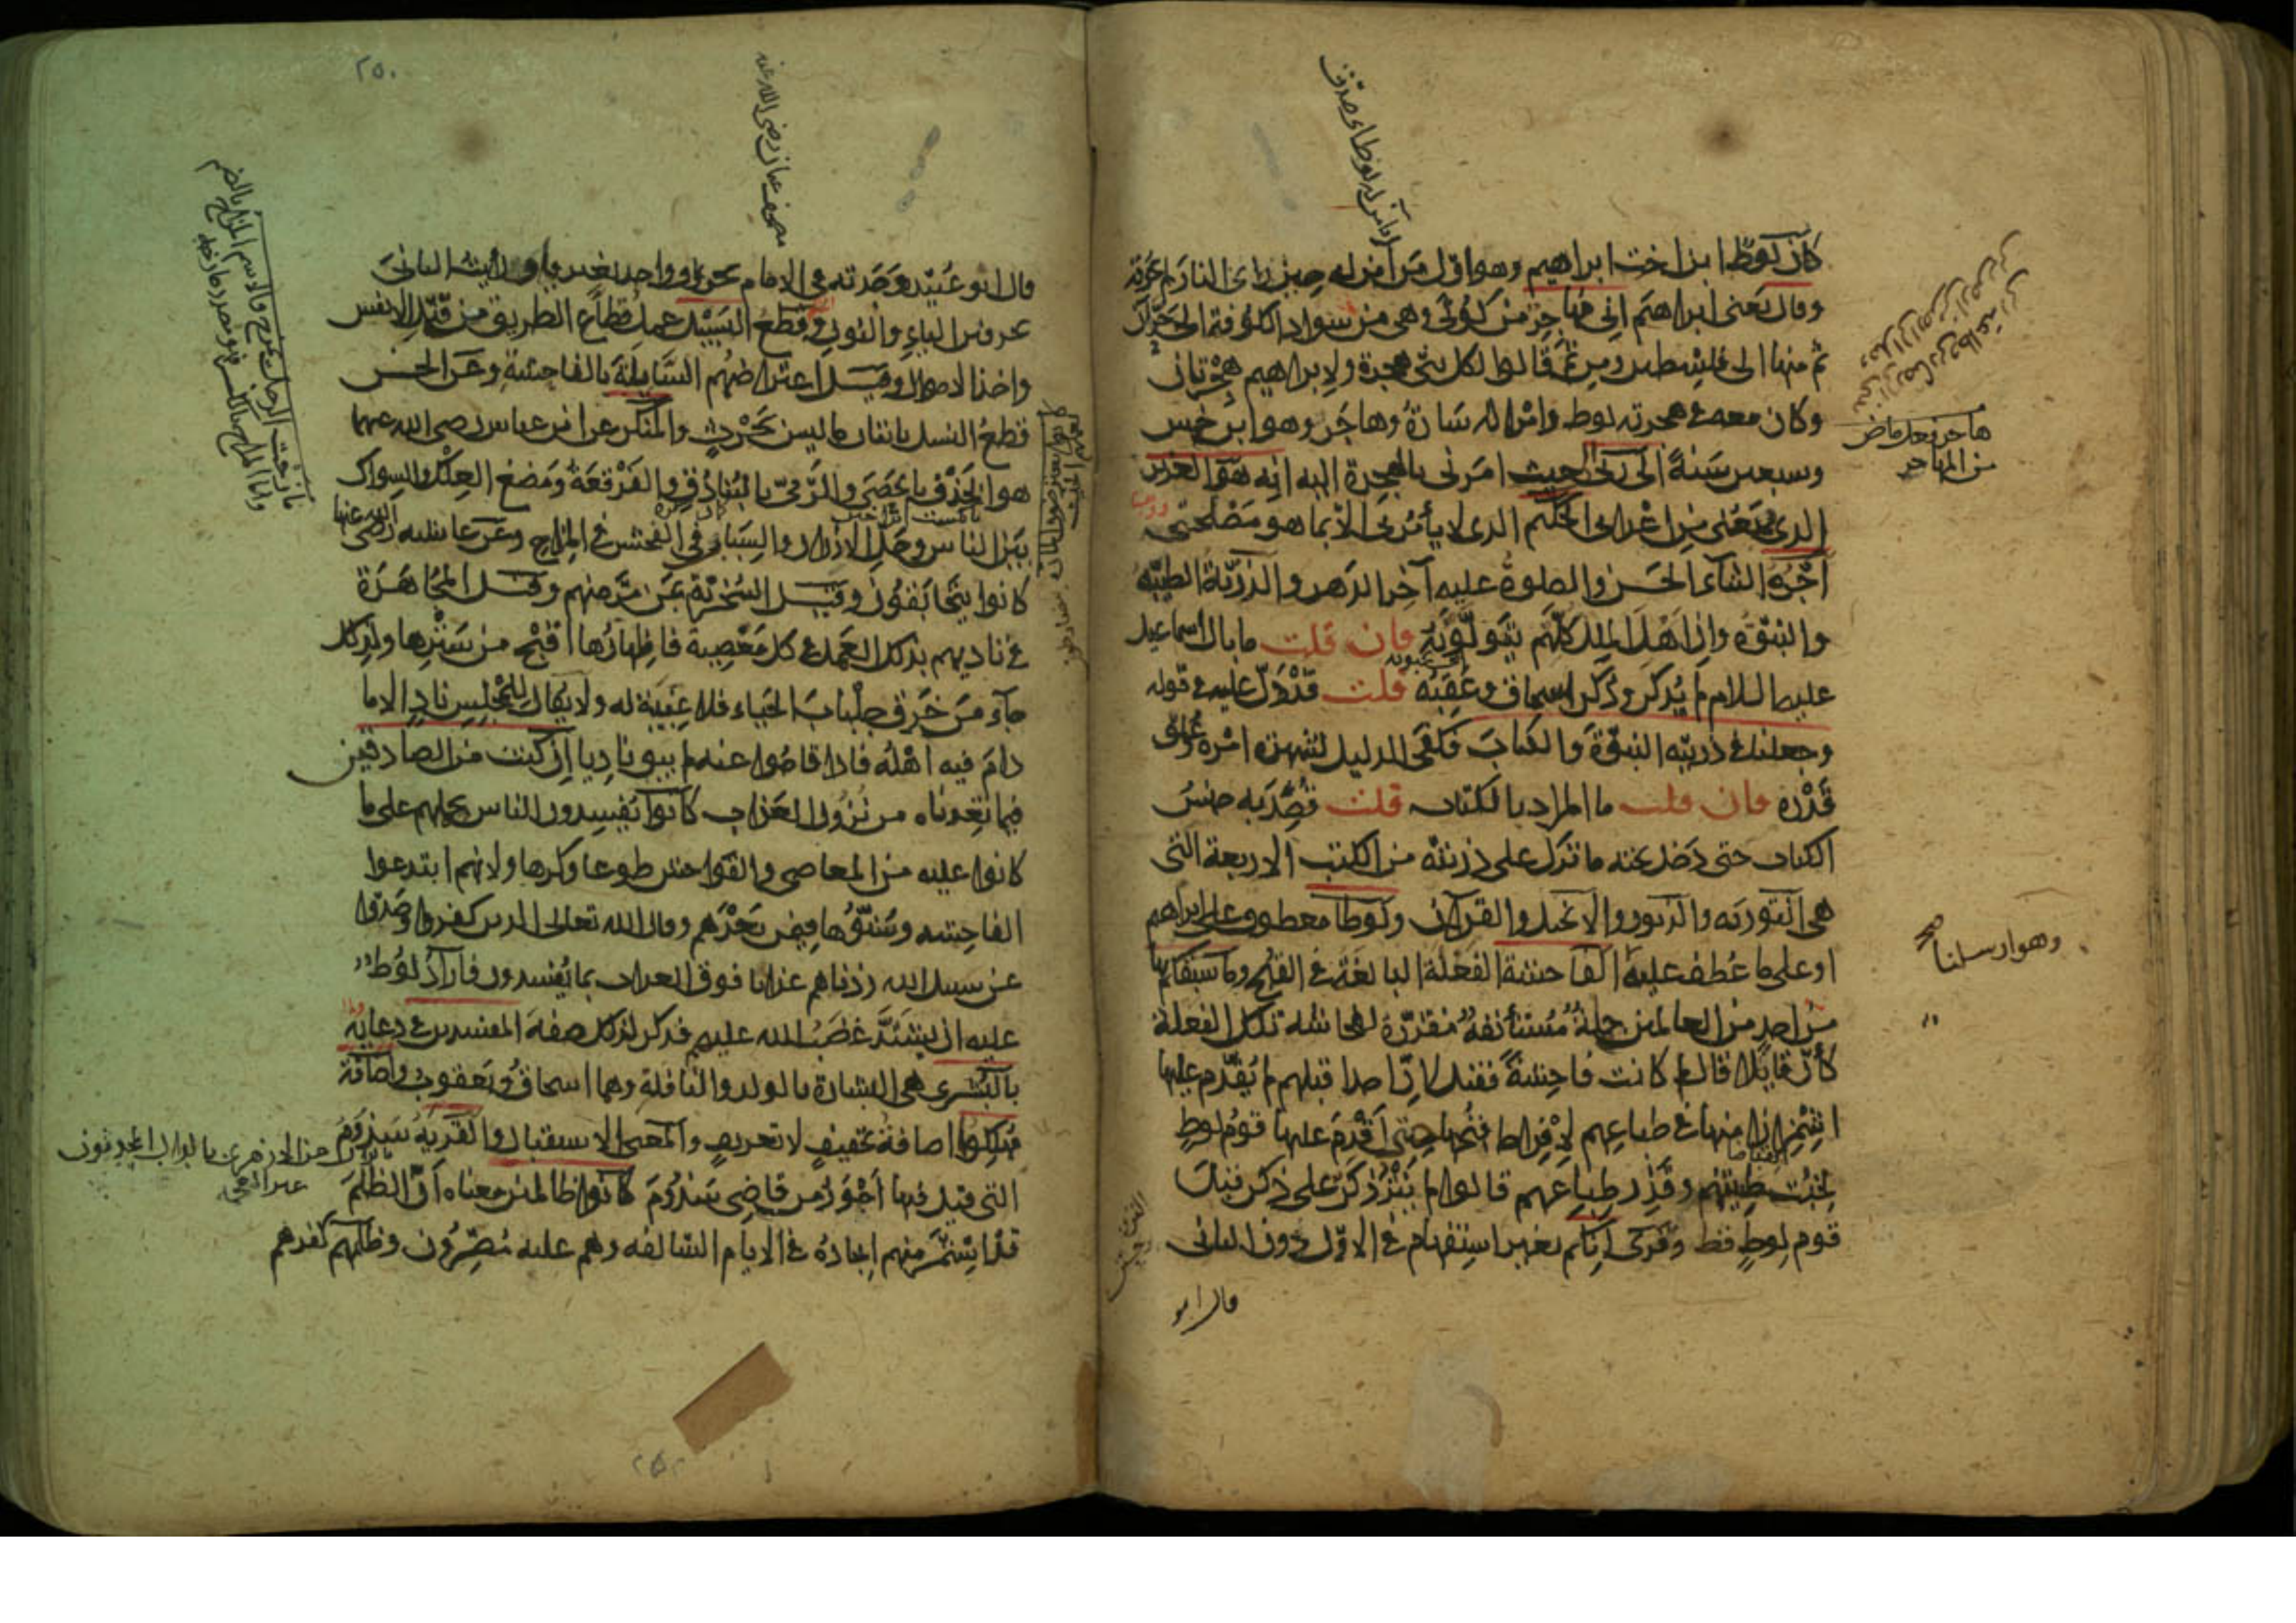 كان لوط ابن اخت ابراهيم وهو اول من آمن له حين راى النار لم تحرقه
وقال يعنى ابراهيم انى مهاجر من كوثى وهى من سواد الكوفة الى حران
ثم منها الى فلسطين ومن ثم قالوا لكل نبى هجرة ولإبراهيم هجرتان
وكان معه فى هجرته لوط وامراته سارة وهاجر وهو ابن خمس
وسبعين سنة الى ربى الى حيث امرنى بالهجرة اليه انه هو العزيز
الذى يمنعنى من اعدائى الحكيم الذى لا يأمرنى الا بما هو مصلحتى
أجره الثناء الحسن والصلوة عليه آخر الدهر والذرية الطيبة
والنبوة وان اهل الملل كلهم يتولونه فان قلت ما بال اسماعيل
عليه السلام لم يذكر وذكر اسحاق وعقبه قلت قد دل عليه فى قوله
وجعلنا فى ذريته النبوة والكتاب فكفى الدليل لشهرة امره وعلو
قدره فان قلت ما المراد بالكتاب قلت قصد به جنس
الكتاب حتى دخل تحته ما نزل على ذريته من الكتب الاربعة التى
هى التورية والزبور والانجيل والقرآن ولوطا معطوف على ابراهيم
او على ما عطف عليه الفاحشة الفعلة البالغة فى القبح وما سبقكم بها
من احد من العالمين جملة مستأنفة مقررة لفاحشة تلك الفعلة
كأن قايلا قال لم كانت فاحشة فقيل لان احدا قبلهم لم يقدم عليها
اشمئزازا منها فى طباعهم لافراط قبحها حتى أقدم عليها قوم لوط
لخبث طينتهم وقذر طباعهم قالوا لم ينز ذكر على ذكر قبل
قوم لوط قط وقرئ انكم بغير استفهام فى الاول دون الثانى
قال ابو
هاجر فعل ماض
من المهاجر
وهو ارسلنا
قال ابو عبيد وجدته فى الامام بحرف واحد بغير ياء ورأيت الثانى
بحرفين الياء والنون وقطع السبيل عمل قطاع الطريق من قتل الانفس
واخذ الاموال وقيل اعتراضهم السابلة بالفاحشة وعن الحسن
قطع النسل باتيان ما ليس بحرث والمنكر عن ابن عباس رضى الله عنهما
هو الخذف بالحصى والرمى بالبنادق والفرقعة ومضغ العلك والسواك
بين الناس وحل الازرار والسباب والفحش فى المزاح وعن عايشه رضى الله عنها
كانوا يتحابقون وقيل السخرية بمن مر بهم وقيل المجاهرة
فى ناديهم بذلك العمل وكل معصية فاظهارها اقبح من سترها ولذلك
جآء من خرق جلباب الحياء فلا غيبة له ولا يقال للمجلس ناد الا ما
دام فيه اهله فاذا قاموا عنه لم يبق ناديا ان كنت من الصادقين
فيما تعدناه من نزول العذاب كانوا يفسدون الناس بحملهم على ما
كانوا عليه من المعاصى والفواحش طوعا وكرها ولانهم ابتدعوا
الفاحشه وسنوها فيمن بعدهم وقال الله تعالى الذين كفروا وصدوا
عن سبيل الله زدناهم عذابا فوق العذاب بما يفسدون فأراد لوط
عليه ان يشتد غضب الله عليهم فذكر لذلك صفة المفسدين فى دعائه
بالبشرى هى البشارة بالولد والنافلة وهما اسحاق ويعقوب واضافة
مهلكوا اضافة تخفيف لا تعريف والمعنى الاستقبال والقرية سدوم
التى قيل فيها أجور من قاضى سدوم كانوا ظالمين معناه أن الظلم
قد استمر منهم ايجاده فى الايام السالفه وهم عليه مصرون وظلمهم كفرهم
مصحف عثمان رضى الله عنه
٢٥٠